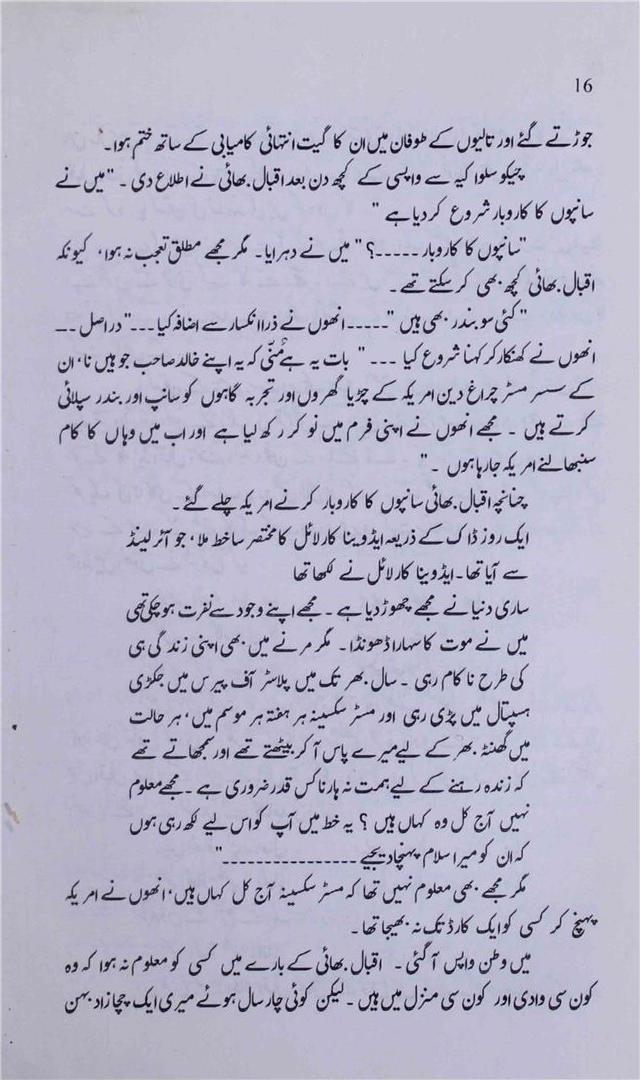 16
جوڑتے گئے اور تالیوں کے طوفان میں ان کا گیت انتہائی کامیابی کے ساتھ ختم ہوا۔
چیکو سلوا کیہ سے واپسی کے کچھ دن بعد اقبال بھائی نے اطلاع دی ۔ "میں نے
سانپوں کا کاروبار شروع کر دیا ہے "
"سانپوں کا کاروبار ۔۔۔۔۔؟ " میں نے دہرایا۔ مگر مجھے مطلق تعجب نہ ہوا، کیونکہ
اقبال بھائی کچھ بھی کر سکتے تھے ۔
"کئی سو بندر بھی ہیں "۔۔۔۔۔ انھوں نے ذرا انکسار سے اضافہ کیا ۔۔۔"در اصل ۔۔
انھوں نے کھنکار کر کہنا شروع کیا ۔۔۔ " بات یہ ہے مُنّی کہ یہ اپنے خالد صاحب جو ہیں نا، ان
کے سسر مسٹر چراغ دین امریکہ کے چڑیا گھروں اور تجربہ گاہوں کو سانپ اور بندر سپلائی
کرتے ہیں ۔ مجھے انھوں نے اپنی فرم میں نوکر رکھ لیا ہے اور اب میں وہاں کا کام
سنبھالنے امریکہ جا رہا ہوں ۔ "
چنانچہ اقبال بھائی سانپوں کا کاروبار کرنے امریکہ چلے گئے ۔
ایک روز ڈاک کے ذریعہ ایڈوینا کارلائل کا مختصر سا خط ملا، جو آئرلینڈ
سے آیا تھا۔ ایڈوینا کارلائل نے لکھا تھا
ساری دنیا نے مجھے چھوڑ دیا ہے ۔ مجھے اپنے وجود سے نفرت ہو چکی تھی
میں نے موت کا سہارا ڈھونڈا۔ مگر مرنے میں بھی اپنی زندگی ہی
کی طرح ناکام رہی ۔ سال بھر تک میں پلاسٹر آف پیرس میں جکڑی
ہسپتال میں پڑی رہی اور مسٹر سکسینہ ہر ہفتہ ہر موسم میں، ہر حالت
میں گھنٹہ بھر کے لیے میرے پاس آ کر بیٹھتے تھے اور سمجھاتے تھے
کہ زندہ رہنے کے لیے ہمت نہ ہارنا کس قدر ضروری ہے ۔ مجھے معلوم
نہیں آج کل وہ کہاں ہیں ؟ یہ خط میں آپ کو اس لیے لکھ رہی ہوں
کہ ان کو میرا سلام پہنچا دیجیے ۔۔۔۔۔۔۔۔۔۔۔۔۔"
مگر مجھے بھی معلوم نہیں تھا کہ مسٹر سکسینہ آج کل کہاں ہیں، انھوں نے امریکہ
پہنچ کر کسی کو ایک کارڈ تک نہ بھیجا تھا ۔
میں وطن واپس آ گئی ۔ اقبال بھائی کے بارے میں کسی کو معلوم نہ ہوا کہ وہ
کون سی وادی اور کون سی منزل میں ہیں ۔ لیکن کوئی چار سال ہوئے میری ایک چچا زاد بہن